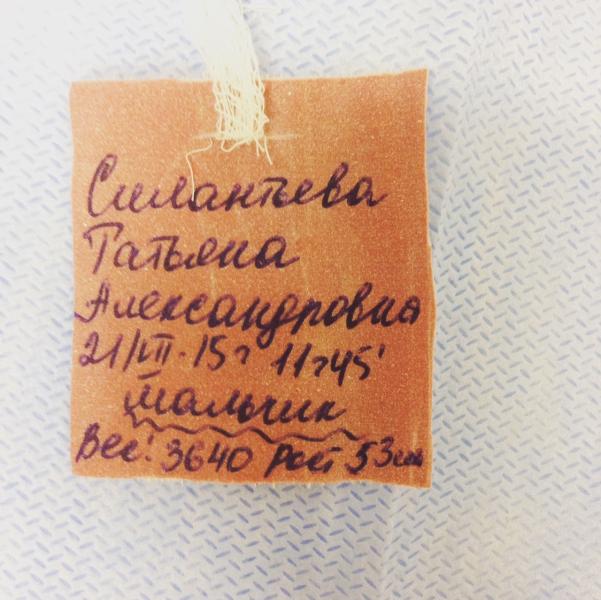 Силантьева
Татьяна
Александровна
21/VII·15г 11ч45'
мальчик
Вес: 3640 Рост 53см